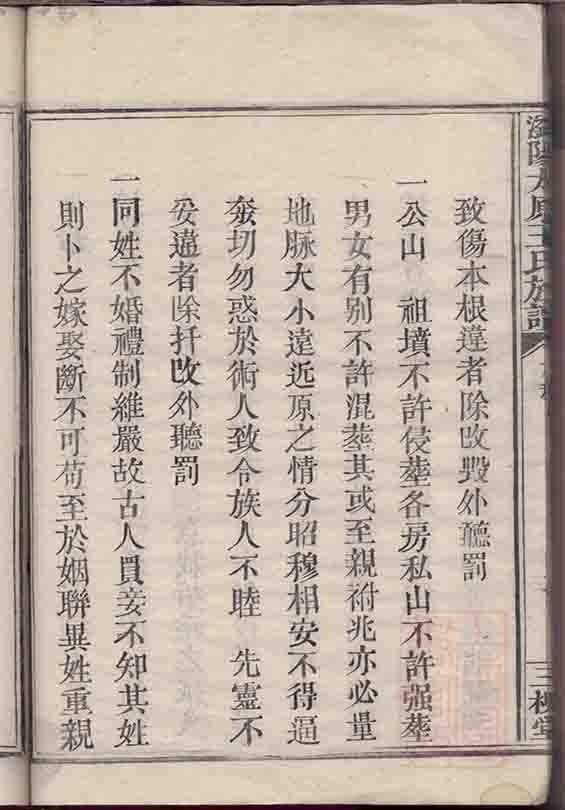 致傷本根違者除改毀外聽罰
一公山　祖墳不許侵塟各房私山不許强塟
男女有别不許混塟其或至親祔兆亦必量
地脉大小遠近原之情分昭穆相安不得逼
奘切勿惑於術人致令族人不睦　先靈不
妥違者除扦改外聽罰
一同姓不婚禮制維嚴故古人買妾不知其姓
則卜之嫁娶斷不可苟至於姻聯異姓重親
陽太原王氏族譜
三槐堂